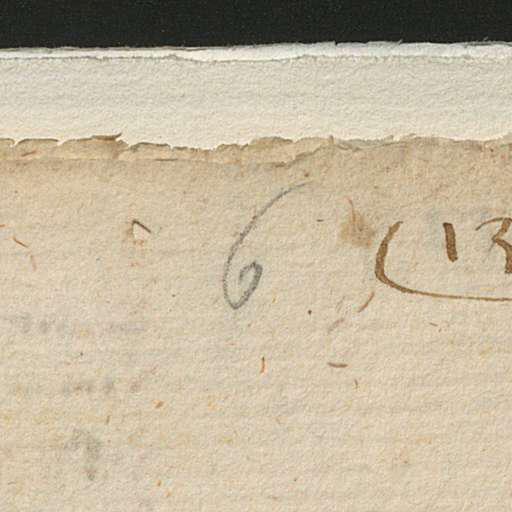 6 (13